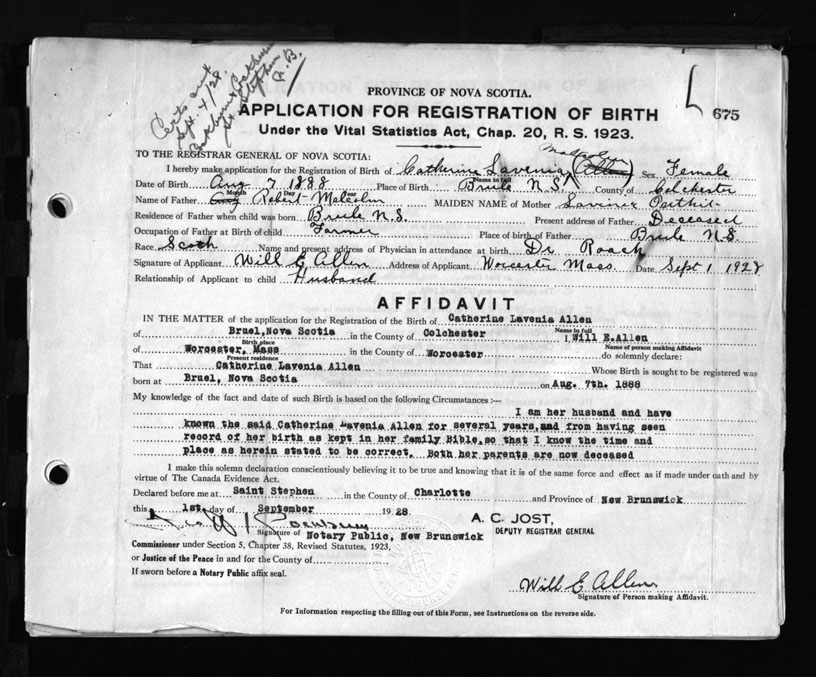 Certs sent
Sept 4/28
St. Stephen
N.B.
675
PROVINCE OF NOVA SCOTIA.
APPLICATION FOR REGISTRATION OF BIRTH
Under the Vital Statistics Act, Chap. 20, R. S. 1923.
TO THE REGISTRAR GENERAL OF NOVA SCOTIA:
Malcolm
I hereby make application for the Registration of Birth of Catherine Lavenia (Allen) Sex Female
Name in full
Date of Birth Aug 7 1888 Place of Birth Brule N.S. County of Colchester
Month Day Year
Name of Father Robert Malcolm MAIDEN NAME of Mother
Residence of Father when child was born Brule N.S. Present address of Father Deceased
Occupation of Father at Birth of child Farmer Place of birth of Father Brule N.S.
Race Scotch Name and present address of Physician in attendance at birth Dr Roach
Signature of Applicant Will E Allen Address of Applicant Worcester Mass Date Sept 1 1928
Relationship of Applicant to child Husband
AFFIDAVIT
IN THE MATTER of the application for the Registration of the Birth of Catherine Lavenia Allen
Name in full
of Bruel, Nova Scotia in the County of Colchester I, Will E. Allen
Birth place Name of person making Affidavit
of Worcester, Mass in the County of Worcester do solemnly declare:
Present residence
That Catherine Lavenia Allen Whose Birth is sought to be registered was
born at Bruel, Nova Scotia on Aug. 7th. 1888
My knowledge of the fact and date of such Birth is based on the following Circumstances :—
I am her husband and have
known the said Catherine Lavenia Allen for several years, and from having seen
record of her birth as kept in her family Bible, so that I know the time and
place as herein stated to be correct. Both her parents are now deceased
I make this solemn declaration conscientiously believing it to be true and knowing that it is of the same force and effect as if made under oath and by
virtue of The Canada Evidence Act.
Declared before me at Saint Stephen in the County of Charlotte and Province of New Brunswick
this 1st day of September 1928
A. C. JOST,
DEPUTY REGISTRAR GENERAL
Signature of Notary Public, New Brunswick
Commissioner under Section 5, Chapter 38, Revised Statutes, 1923,
or Justice of the Peace in and for the County of
If sworn before a Notary Public affix seal.
Will E Allen
Signature of Person making Affidavit.
For Information respecting the filling out of this Form, see Instructions on the reverse side.